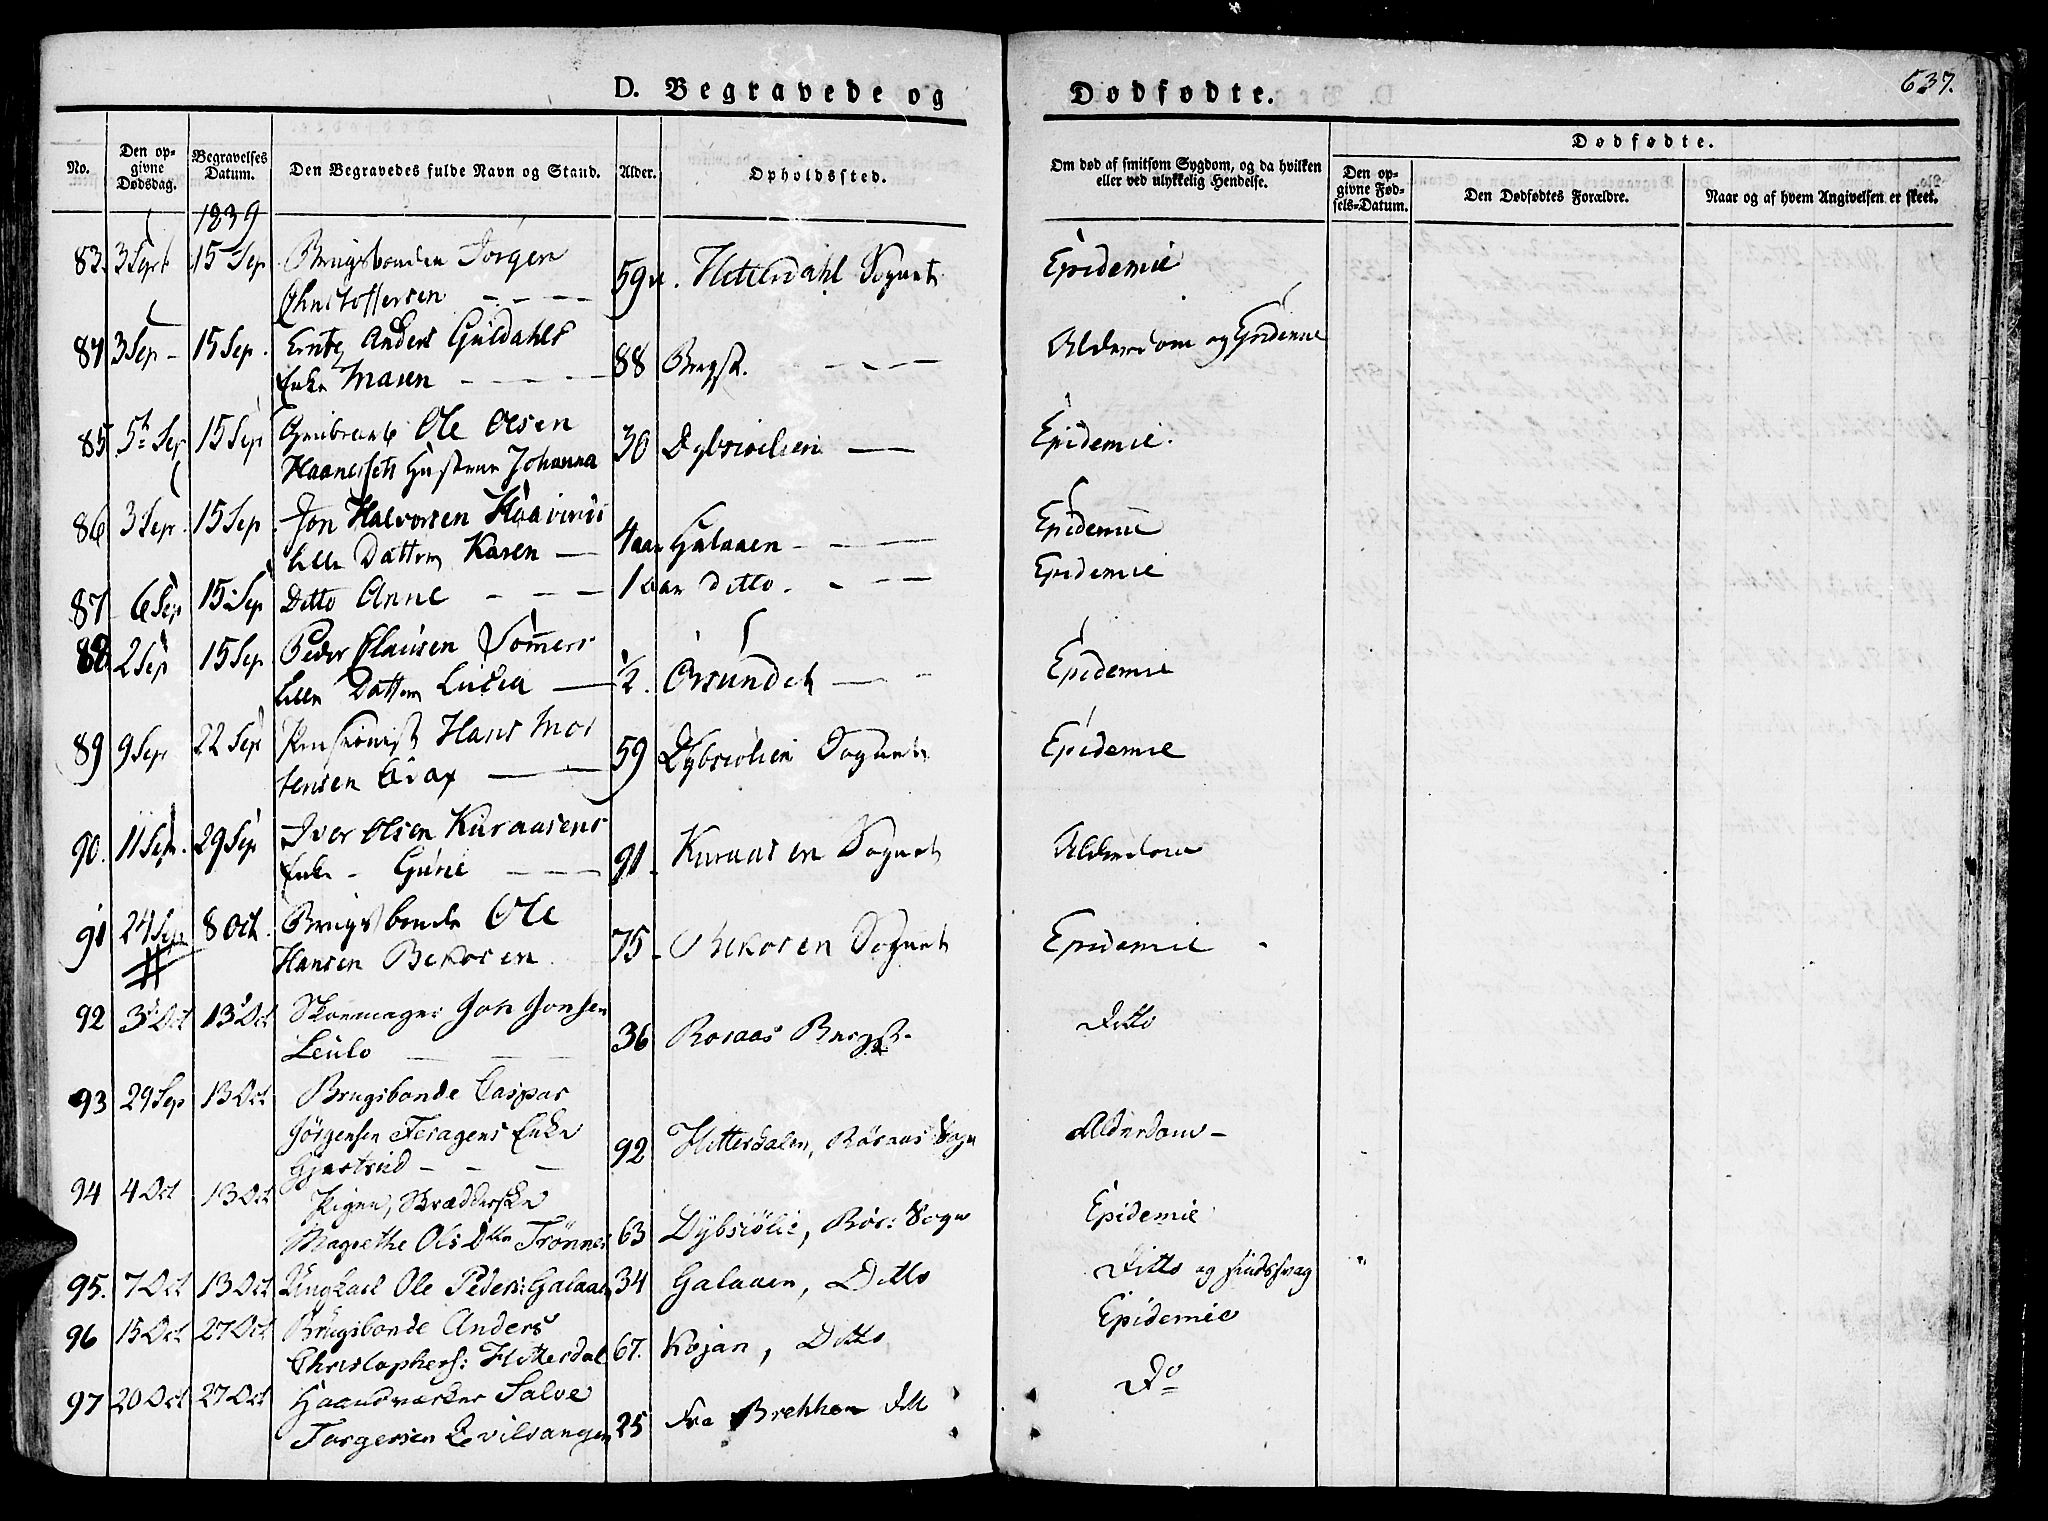 D. Begravede og Dødfødte.
637.
No.
Den opgivne Dødsdag.
Begravelses Datum.
Den Begravedes fulde Navn og Stand.
Alder.
Opholdssted.
Om død af smitsom Sygdom, og da hvilken
eller ved ulykkelig Hendelse.
Dødfødte.
Den opgivne Fødsels-Datum.
Den Dødfødtes Forældre.
Naar og af hvem Angivelsen er skeet.
1839
83. 3 Sept 15 Sep Brugsbonden Jørgen
Christoffersen 59 Hitterdahl Sognet Epidemie
84 3 Sep 15 Sep. Anders Guldahls
Enke Maren 88 Bergst. Alderdom og Epidemie
85 5 Sep 15 Sep Ole Olsen
Hustrue Johanna 30 Dybsiølien Epidemie.
86 3 Sep. 15 Sep Jon Halvorsen
lille Datter Karen 4 aar Galaaen Epidemie
87 6 Sep 15 Sep Ditto Anne 1 aar Ditto. Epidemie
88 2 Sep 15 Sep Peder Clausen Sømers
lille Datter Lucia ½. Orsundet Epidemie
89 9 Sep 22 Sep Pensionist Hans Mor
tensen 59 Dybsiølien Sognet Epidemie
90. 11 Sep. 29 Sep Iver Olsen Kuraasens
Enke - Gune 91 Kuraasen Sognet Alderdom
91 24 Sep 8 Oct. Brugsbonde Ole
Hansen Bekosen 75 Bekosen Sognet Epidemie
92 3 Oct 13 Oct Skoemager Jon Jonsen
Leulo 36 Roraas Bergst. Ditto
93 29 Sep 13 Oct Brugsbonde Caspar
Jørgensen Feragens Enke
Gjertrud 92 Hitterdalen, Røraas Sogn Alderdom
94 4 Oct 13 Oct Pigen, Skrædderske
Magrethe Ols Dtr Trønnes 63 Dybsiølie, Rør: Sogn Epidemie
95. 7 Oct 13 Oct Ungkarl Ole Peders: Galaaen 34 Galaaen, Ditto Ditto og sindssvag
96 15 Oct 27 Oct Brugsbonde Anders
Christophers: Hitterdal 67. Kojan, Ditto Epidemie
97 20 Oct 27 Oct Haandværker Salve
Torgersen 25 fra Brekken Do